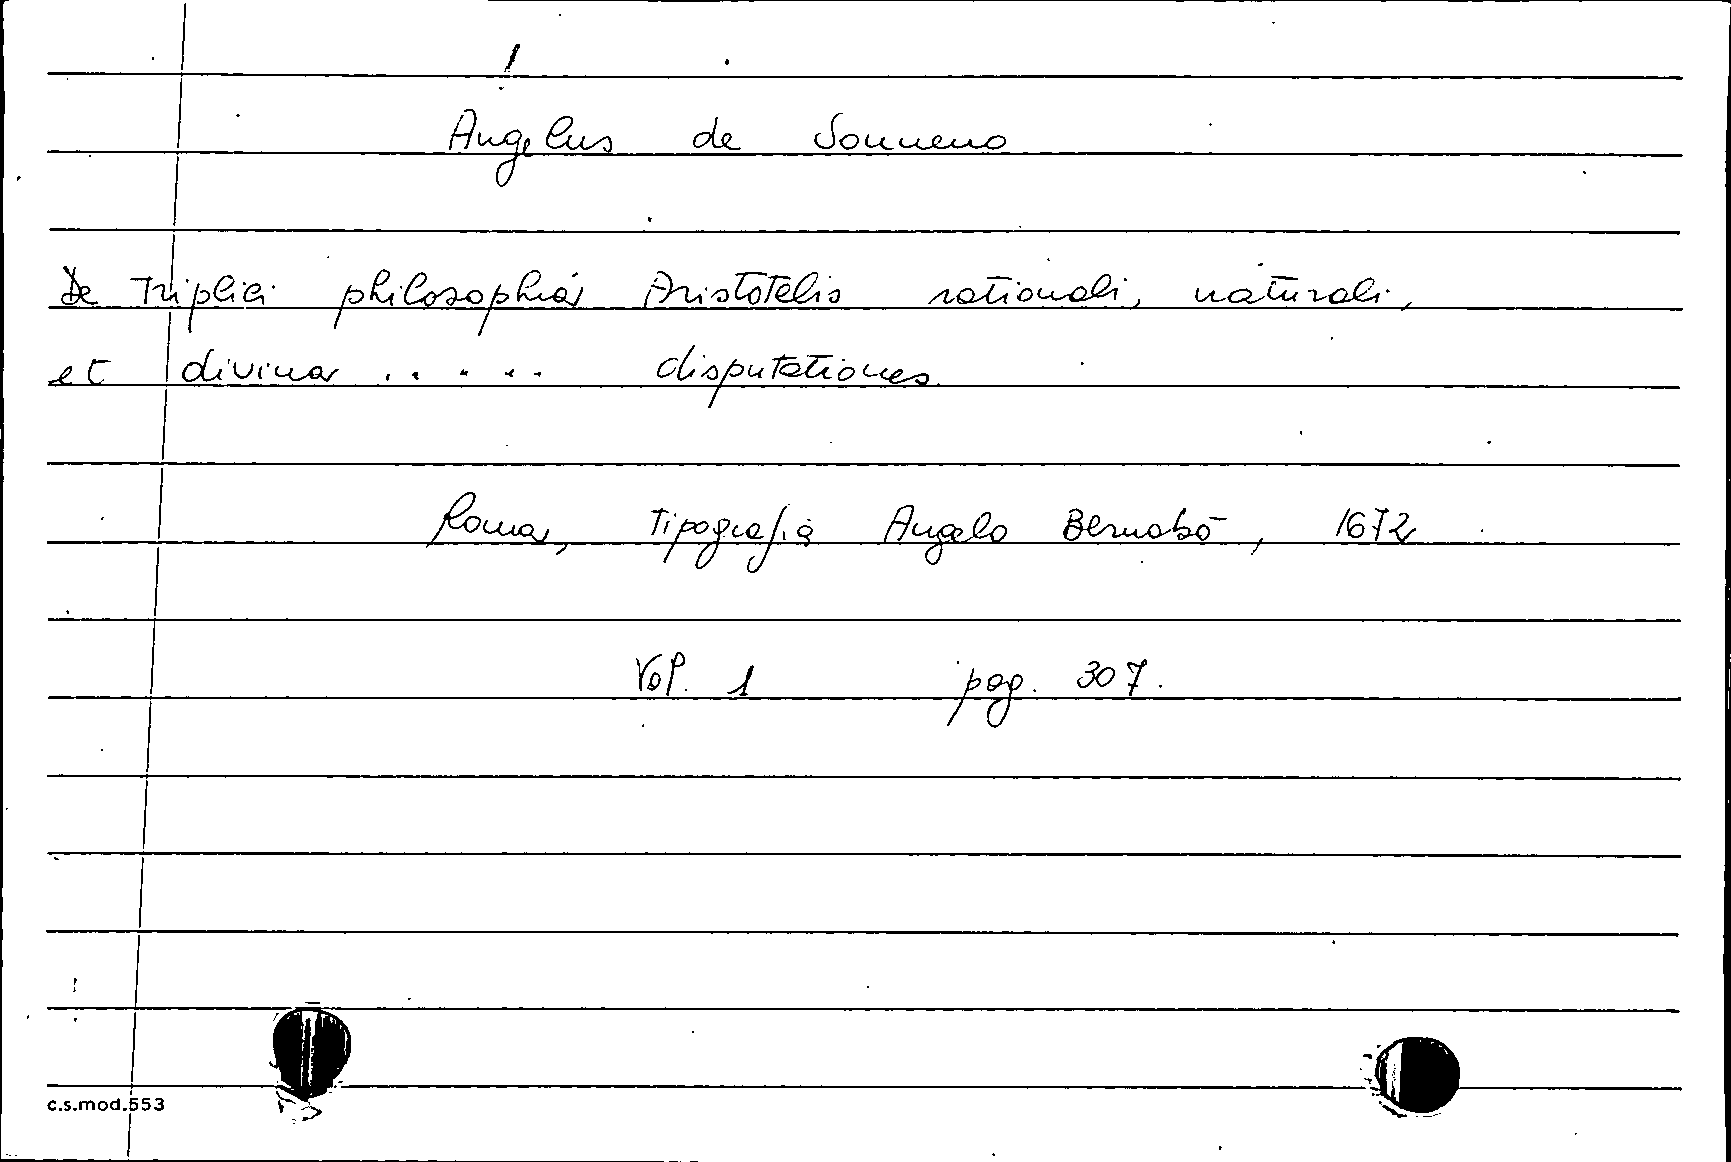 1
Angelus de Sonneno
De Triplici philosophia Aristotelis rationali, naturali,
et divina ..... disputationes
Roma, Tipografia Angelo Bernabò, 1672
Vol. 1 pag. 307.
c.s.mod.553